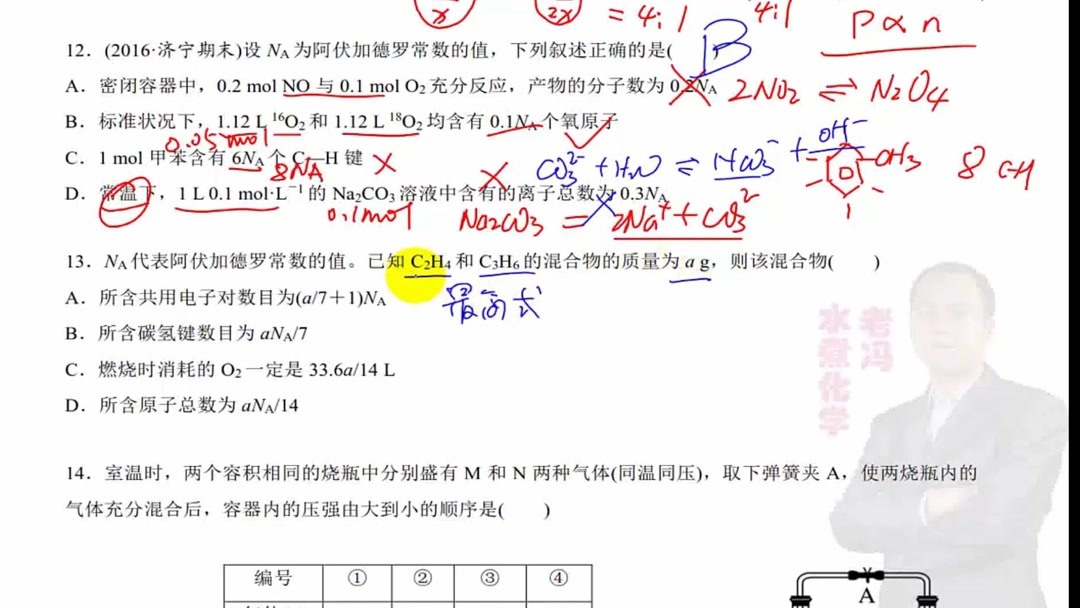 x 2x = 4:1 4:1 P∝n
12．(2016·济宁期末)设 NA 为阿伏加德罗常数的值，下列叙述正确的是( B
A．密闭容器中，0.2 mol NO 与 0.1 mol O2 充分反应，产物的分子数为 0.2NA 2NO2 ⇌ N2O4
B．标准状况下，1.12 L 16O2 和 1.12 L 18O2 均含有 0.1NA 个氧原子
0.05mol
CO3²⁻ + H2O ⇌ HCO3⁻ + OH⁻
CH3 8 C-H
C．1 mol 甲苯含有 6NA 个 C—H 键
8NA
D．常温下，1 L 0.1 mol·L⁻¹ 的 Na2CO3 溶液中含有的离子总数为 0.3NA
0.1mol Na2CO3 = 2Na⁺ + CO3²⁻
13．NA 代表阿伏加德罗常数的值。已知 C2H4 和 C3H6 的混合物的质量为 a g，则该混合物( )
最简式
A．所含共用电子对数目为(a/7＋1)NA
B．所含碳氢键数目为 aNA/7
C．燃烧时消耗的 O2 一定是 33.6a/14 L
D．所含原子总数为 aNA/14
老冯
水煮化学
14．室温时，两个容积相同的烧瓶中分别盛有 M 和 N 两种气体(同温同压)，取下弹簧夹 A，使两烧瓶内的
气体充分混合后，容器内的压强由大到小的顺序是( )
编号 ① ② ③ ④
A